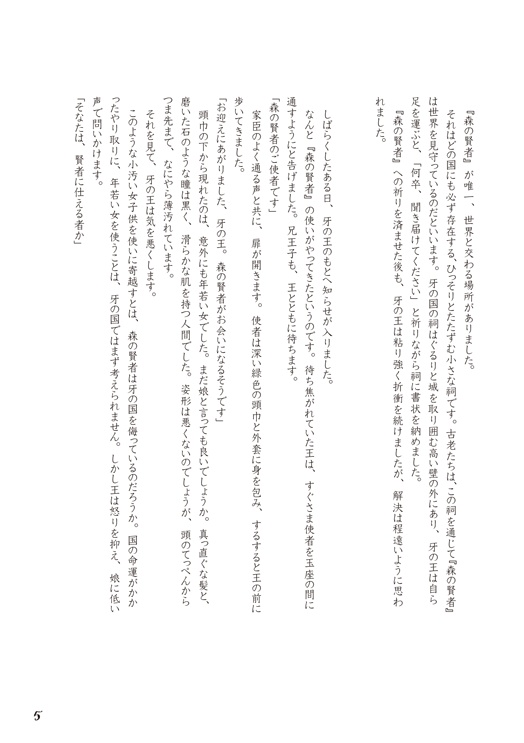 『森の賢者』が唯一、世界と交わる場所がありました。
それはどの国にも必ず存在する、ひっそりとたたずむ小さな祠です。古老たちは、この祠を通じて『森の賢者』
は世界を見守っているのだといいます。牙の国の祠はぐるりと城を取り囲む高い壁の外にあり、牙の王は自ら
足を運ぶと、「何卒、聞き届けてください」と祈りながら祠に書状を納めました。
『森の賢者』への祈りを済ませた後も、牙の王は粘り強く折衝を続けましたが、解決は程遠いように思わ
れました。
しばらくしたある日、牙の王のもとへ知らせが入りました。
なんと『森の賢者』の使いがやってきたというのです。待ち焦がれていた王は、すぐさま使者を玉座の間に
通すようにと告げました。兄王子も、王とともに待ちます。
「森の賢者のご使者です」
家臣のよく通る声と共に、扉が開きます。使者は深い緑色の頭巾と外套に身を包み、するすると王の前に
歩いてきました。
「お迎えにあがりました、牙の王。森の賢者がお会いになるそうです」
頭巾の下から現れたのは、意外にも年若い女でした。まだ娘と言っても良いでしょうか。真っ直ぐな髪と、
磨いた石のような瞳は黒く、滑らかな肌を持つ人間でした。姿形は悪くないのでしょうが、頭のてっぺんから
つま先まで、なにやら薄汚れています。
それを見て、牙の王は気を悪くします。
このような小汚い女子供を使いに寄越すとは、森の賢者は牙の国を侮っているのだろうか。国の命運がかか
ったやり取りに、年若い女を使うことは、牙の国ではまず考えられません。しかし王は怒りを抑え、娘に低い
声で問いかけます。
「そなたは、賢者に仕える者か」
5